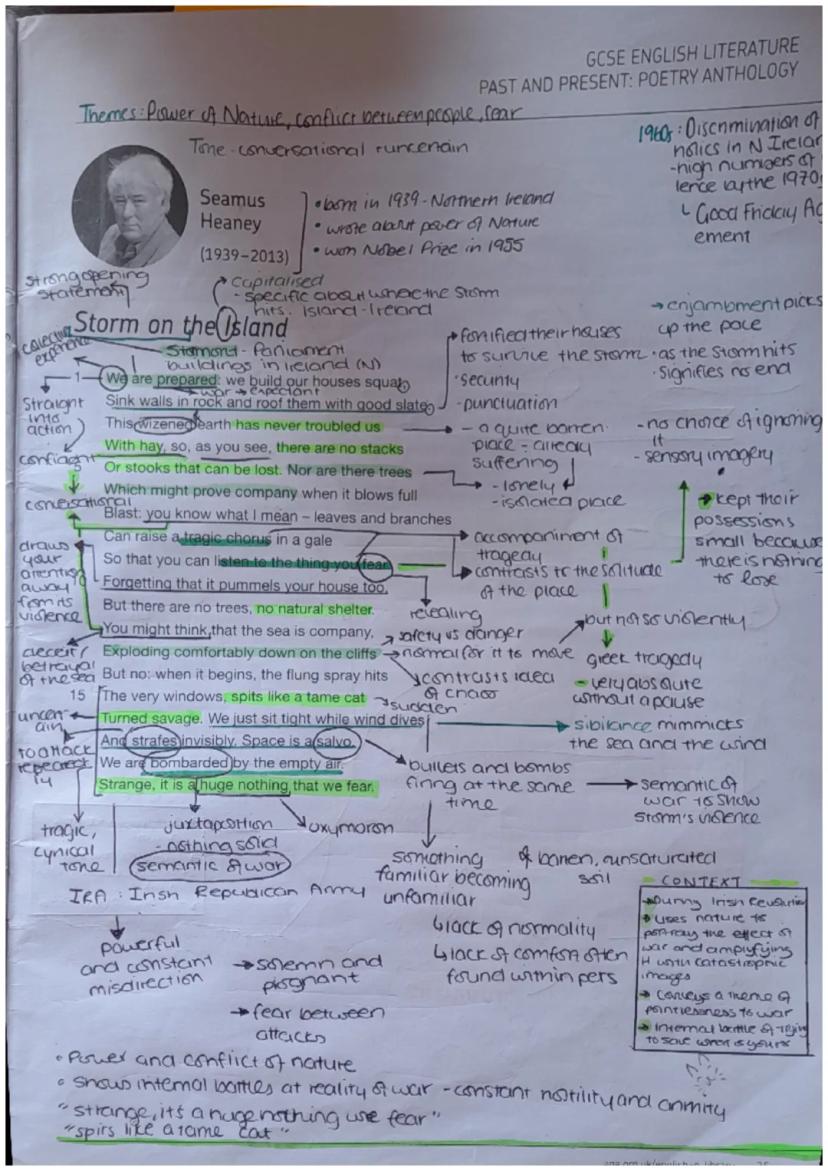 GCSE ENGLISH LITERATURE
PAST AND PRESENT: POETRY ANTHOLOGY
Themes: Power of Nature, conflict between people, fear
Tone - conversational + uncertain
1960s: Discrimination of
holics in N Irelan
- high numbers of
lence by the 1970
↳ Good Friday Ag
ement
Seamus
Heaney
(1939–2013)
• born in 1939 - Northern Ireland
• wrote about power of Nature
• won Nobel Prize in 1955
strong opening
statement
Capitalised
- specific about where the storm
hits. Island - Ireland
Storm on the Island
collective
experience
Stormont - Parliament
buildings in Ireland (N)
We are prepared: we build our houses squat,
→ war → expectant
Sink walls in rock and roof them with good slate.
This wizened earth has never troubled us
With hay, so, as you see, there are no stacks
5
Or stooks that can be lost. Nor are there trees
Which might prove company when it blows full
Blast: you know what I mean – leaves and branches
Can raise a tragic chorus in a gale
So that you can listen to the thing you fear
Forgetting that it pummels your house too.
But there are no trees, no natural shelter.
You might think, that the sea is company,
Exploding comfortably down on the cliffs
But no: when it begins, the flung spray hits
15
The very windows, spits like a tame cat
Turned savage. We just sit tight while wind dives
And strafes invisibly. Space is a salvo.
We are bombarded by the empty air.
Strange, it is a huge nothing that we fear.
1
Straight
into
action
confident
conversational
draws
your
attention
away
from its
violence
deceit/
betrayal
of the sea
uncert-
ain
to attack
repeated
ly
tragic,
cynical
tone
→ fortified their houses
to survive the storm
· security
· punctuation
→ enjambment picks
up the pace
· as the storm hits
· signifies no end
- a quite barren
place - already
suffering
- lonely
- isolated place
- no choice of ignoring
it
- sensory imagery
→ kept their
possessions
small because
there is nothing
to lose
→ accompaniment of
tragedy
→ contrasts to the solitude
of the place
revealing
→ safety vs danger
→ normal for it to move
but not so violently
contrasts idea
of chaos
greek tragedy
- very absolute
without a pause
→ sudden
→ sibilance mimmicks
the sea and the wind
bullets and bombs
firing at the same
time
→ semantic of
war to show
storm's violence
juxtaportion
- nothing solid
semantic of war
oxymoron
something
familiar becoming
unfamiliar
↳ lack of normality
↳ lack of comfort often
found within pers
of barren, unsaturated
soil
IRA : Irish Republican Army
powerful
and constant
misdirection
→ solemn and
piognant
→ fear between
attacks
- CONTEXT
→ During Irish
→ uses nature to
portray the effect of
war and amplyfying
it with catastrophic
images
→ Conveys a theme of
pointlessness to war
→ Internal battle of trying
to save what is yours
• Power and conflict of nature
• Shows internal battles at reality of war - constant hostility and anmity
"strange, it's a huge nothing we fear"
"spits like a tame cat"